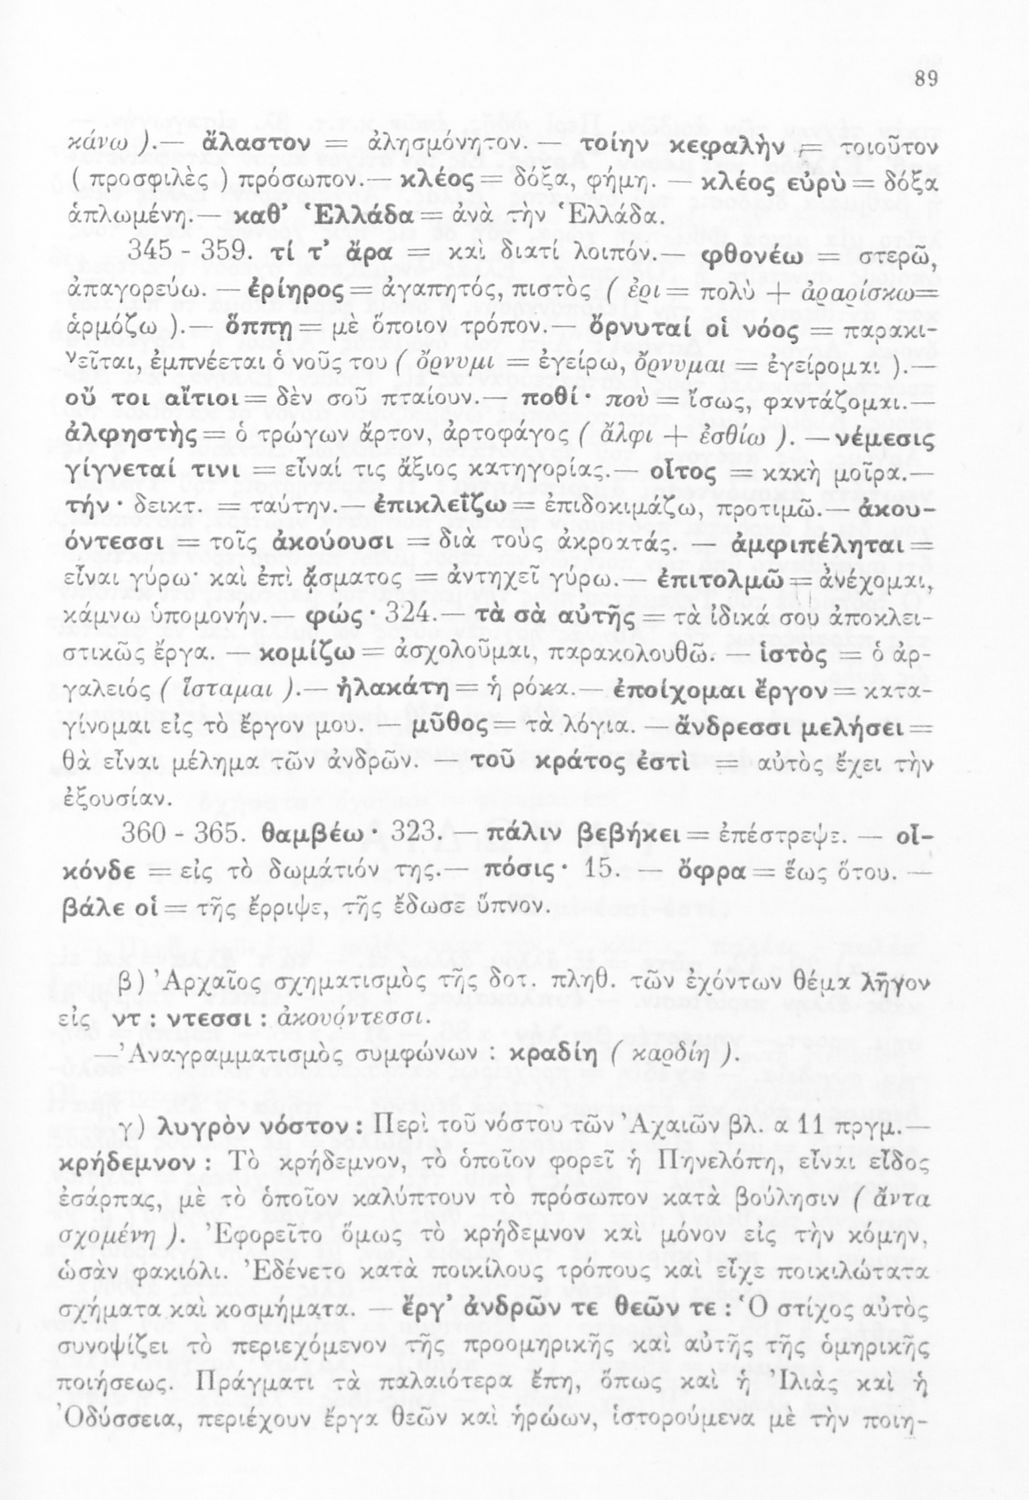 89
κάνω ).— ἄλαστον = ἀλησμόνητον. — τοίην κεφαλὴν = τοιοῦτον
( προσφιλὲς ) πρόσωπον.— κλέος = δόξα, φήμη. — κλέος εὐρὺ = δόξα
ἁπλωμένη.— καθ’ Ἑλλάδα = ἀνὰ τὴν Ἑλλάδα.
345 - 359. τί τ’ ἄρα = καὶ διατί λοιπόν.— φθονέω = στερῶ,
ἀπαγορεύω. — ἐρίηρος = ἀγαπητός, πιστὸς ( ἐρι = πολὺ + ἀραρίσκω=
ἁρμόζω ).— ὅππῃ = μὲ ὅποιον τρόπον.— ὄρνυταί οἱ νόος = παρακι-
νεῖται, ἐμπνέεται ὁ νοῦς του ( ὄρνυμι = ἐγείρω, ὄρνυμαι = ἐγείρομαι ).—
οὔ τοι αἴτιοι = δὲν σοῦ πταίουν.— ποθί· πού = ἴσως, φαντάζομαι.—
ἀλφηστὴς = ὁ τρώγων ἄρτον, ἀρτοφάγος ( ἄλφι + ἐσθίω ). — νέμεσις
γίγνεταί τινι = εἶναί τις ἄξιος κατηγορίας.— οἶτος = κακὴ μοῖρα.—
τήν· δεικτ. = ταύτην.— ἐπικλεΐζω = ἐπιδοκιμάζω, προτιμῶ.— ἀκου-
όντεσσι = τοῖς ἀκούουσι = διὰ τοὺς ἀκροατάς. — ἀμφιπέληται =
εἶναι γύρω· καὶ ἐπὶ ᾄσματος = ἀντηχεῖ γύρω.— ἐπιτολμῶ = ἀνέχομαι,
κάμνω ὑπομονήν.— φώς· 324.— τὰ σὰ αὐτῆς = τὰ ἰδικά σου ἀποκλει-
στικῶς ἔργα. — κομίζω = ἀσχολοῦμαι, παρακολουθῶ. — ἱστὸς = ὁ ἀρ-
γαλειός ( ἵσταμαι ).— ἠλακάτη = ἡ ρόκα.— ἐποίχομαι ἔργον = κατα-
γίνομαι εἰς τὸ ἔργον μου. — μῦθος = τὰ λόγια. — ἄνδρεσσι μελήσει =
θὰ εἶναι μέλημα τῶν ἀνδρῶν. — τοῦ κράτος ἐστὶ = αὐτὸς ἔχει τὴν
ἐξουσίαν.
360 - 365. θαμβέω· 323. — πάλιν βεβήκει = ἐπέστρεψε. — οἶ-
κόνδε = εἰς τὸ δωμάτιόν της.— πόσις· 15. — ὄφρα = ἕως ὅτου. —
βάλε οἱ = τῆς ἔρριψε, τῆς ἔδωσε ὕπνον.
β) Ἀρχαῖος σχηματισμὸς τῆς δοτ. πληθ. τῶν ἐχόντων θέμα λῆγον
εἰς ντ : ντεσσι : ἀκουόντεσσι.
—Ἀναγραμματισμὸς συμφώνων : κραδίη ( καρδίη ).
γ) λυγρὸν νόστον : Περὶ τοῦ νόστου τῶν Ἀχαιῶν βλ. α 11 πργμ.—
κρήδεμνον : Τὸ κρήδεμνον, τὸ ὁποῖον φορεῖ ἡ Πηνελόπη, εἶναι εἶδος
ἐσάρπας, μὲ τὸ ὁποῖον καλύπτουν τὸ πρόσωπον κατὰ βούλησιν ( ἄντα
σχομένη ). Ἐφορεῖτο ὅμως τὸ κρήδεμνον καὶ μόνον εἰς τὴν κόμην,
ὡσὰν φακιόλι. Ἐδένετο κατὰ ποικίλους τρόπους καὶ εἶχε ποικιλώτατα
σχήματα καὶ κοσμήματα. — ἔργ’ ἀνδρῶν τε θεῶν τε : Ὁ στίχος αὐτὸς
συνοψίζει τὸ περιεχόμενον τῆς προομηρικῆς καὶ αὐτῆς τῆς ὁμηρικῆς
ποιήσεως. Πράγματι τὰ παλαιότερα ἔπη, ὅπως καὶ ἡ Ἰλιὰς καὶ ἡ
Ὀδύσσεια, περιέχουν ἔργα θεῶν καὶ ἡρώων, ἱστορούμενα μὲ τὴν ποιη-